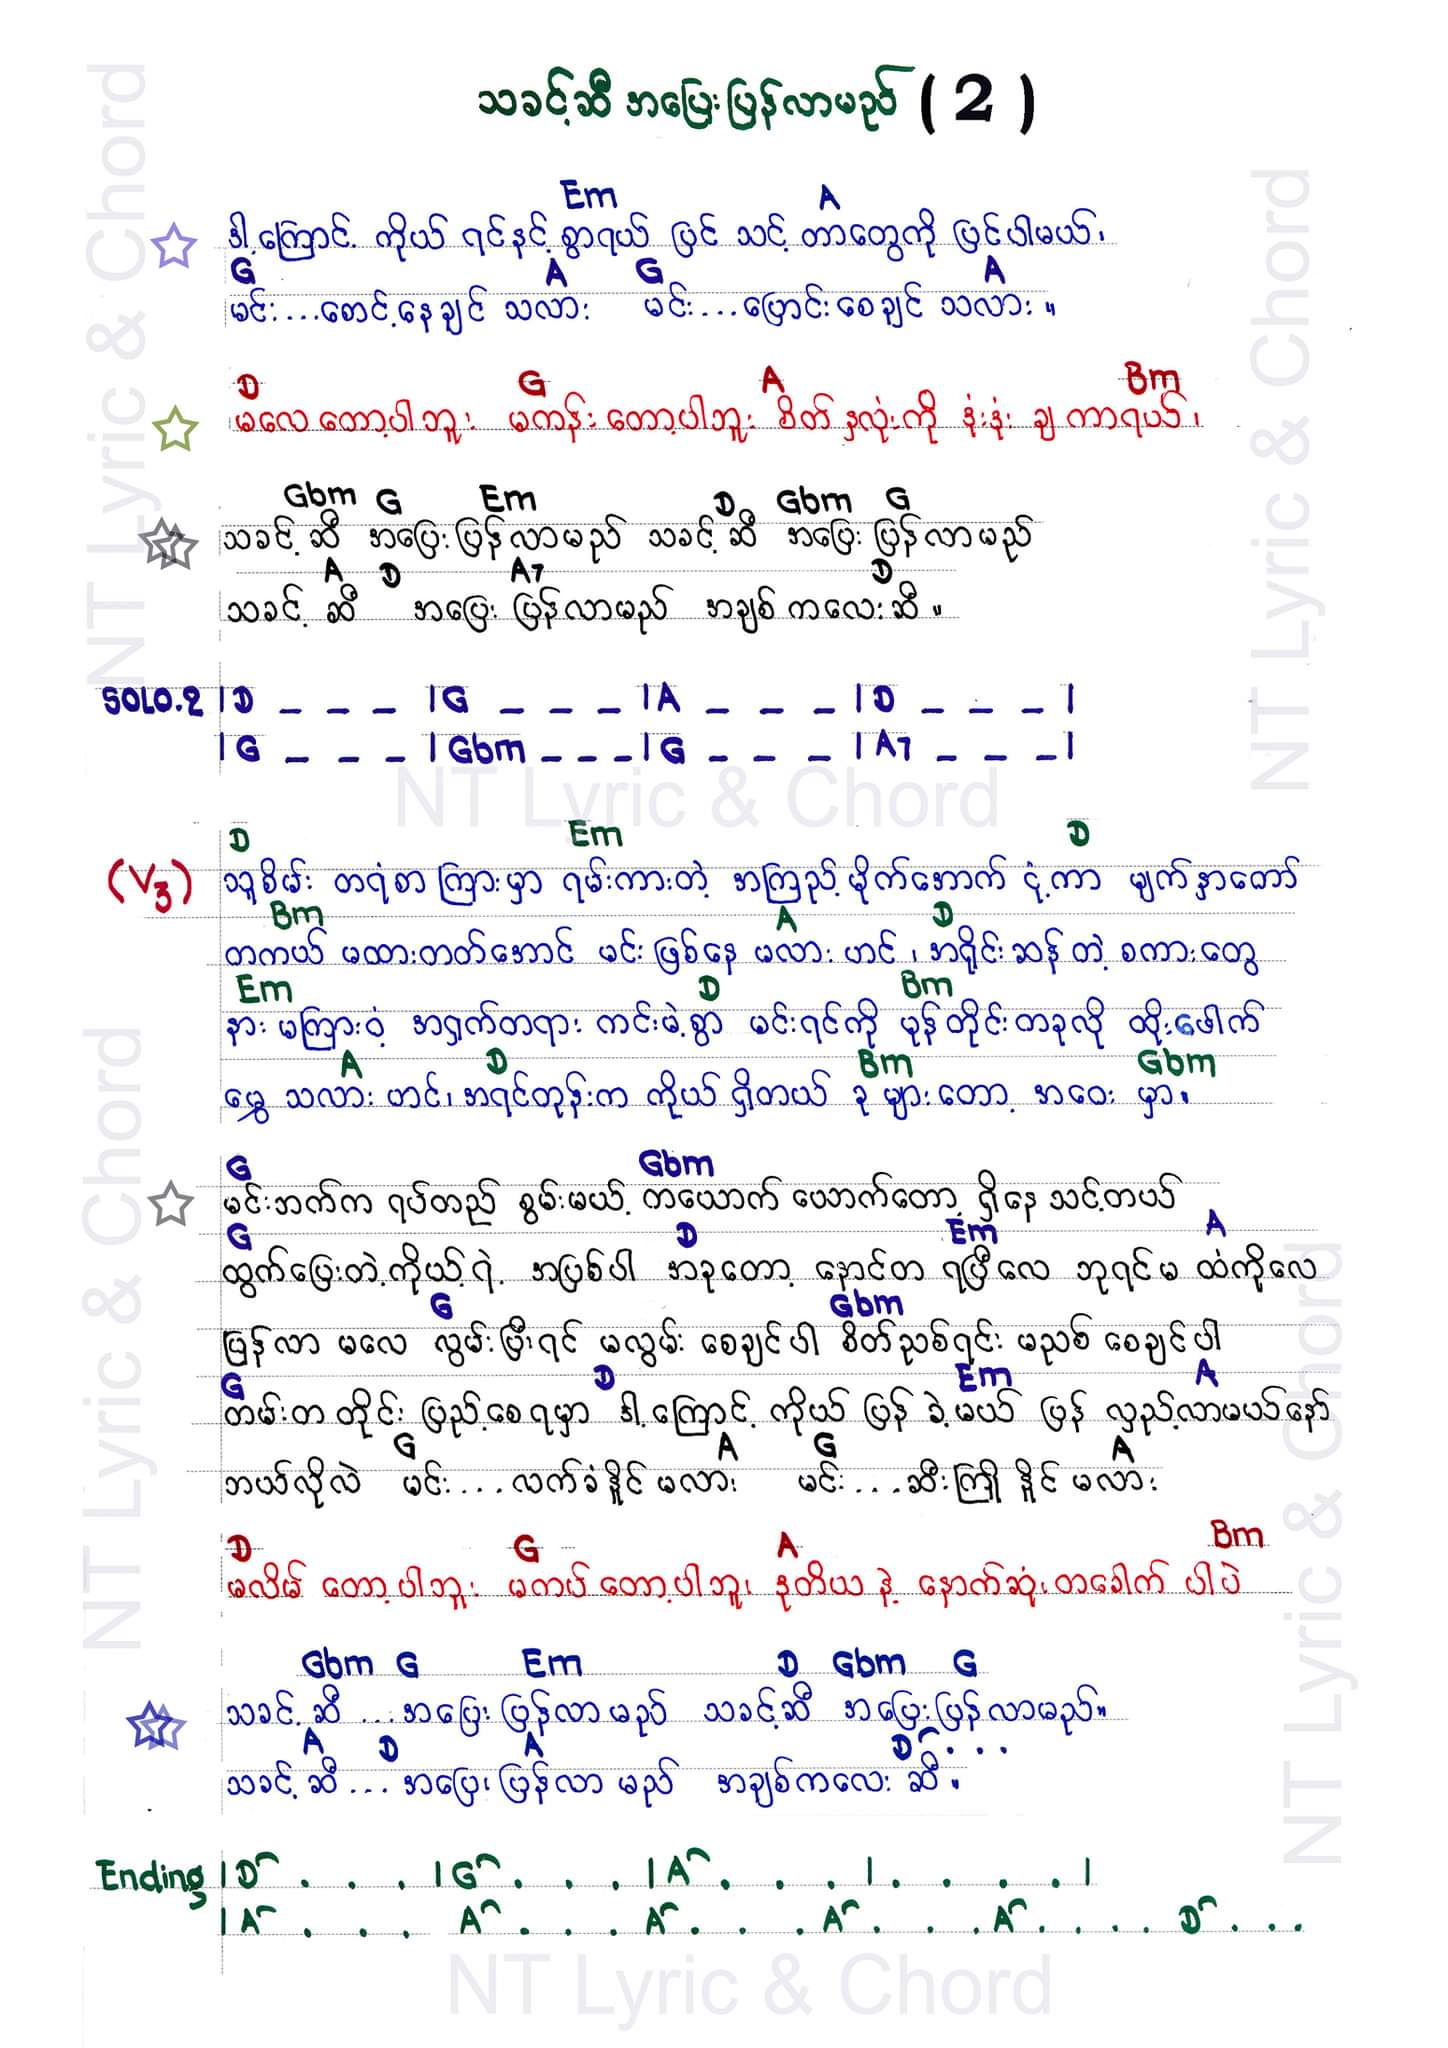 သခင့်ဆီ အပြေးပြန်လာမည် ( 2 )
Em A
ဒါ့ကြောင့် ကိုယ် ရင်နင့်စွာရယ် ပြင် သင့် တာတွေကို ပြင်ပါမယ်၊
G A G A
မင်း...စောင့်နေချင် သလား မင်း...ပြောင်းစေချင် သလား ။
D G A Bm
မလေတော့ပါဘူး မကန်းတော့ပါဘူး စိတ်နှလုံးကို နုံးနုံး ချ ကာရယ်၊
Gbm G Em D Gbm G
သခင့် ဆီ အပြေး ပြန်လာမည် သခင့် ဆီ အပြေး ပြန်လာမည်
A D A7 D
သခင့် ဆီ အပြေး ပြန်လာမည် အချစ် ကလေးဆီ ။
SOLO.2 | D _ _ _ | G _ _ _ | A _ _ _ | D _ _ _ |
| G _ _ _ | Gbm _ _ _ | G _ _ _ | A7 _ _ _ |
D Em D
(V3) သူစိမ်း တရံစာ ကြားမှာ ရမ်းကားတဲ့ အကြည့်မိုက်အောက် ငုံ့ကာ မျက်နှာတော်
Bm A D
တကယ် မထားတတ်အောင် မင်း ဖြစ်နေ မလား ဟင် ၊ အရိုင်းဆန် တဲ့ စကားတွေ
Em D Bm
နား မကြားဝံ့ အရှက်တရား ကင်းမဲ့စွာ မင်းရင်ကို မုန်တိုင်းတခုလို ထိုးဖေါက်
A D Bm Gbm
မွှေ သလား ဟင်၊ အရင်တုန်းက ကိုယ် ရှိတယ် ခု များတော့ အဝေး မှာ။
G Gbm
မင်းဘက်က ရပ်တည် စွမ်းမယ့် တယောက် ယောက်တော့ ရှိနေ သင့်တယ်
G D Em A
ထွက်ပြေးတဲ့ကိုယ့်ရဲ့ အပြစ်ပါ အခုတော့ နောင်တ ရပြီလေ ဘုရင်မ ထံကိုလေ
G Gbm
ပြန်လာ မလေ လွမ်းပြီးရင် မလွမ်း စေချင်ပါ စိတ်ညစ်ရင်း မညစ် စေချင်ပါ
G D Em A
တမ်းတ တိုင်း ပြည့်စေရမှာ ဒါ့ကြောင့် ကိုယ် ပြန် ခဲ့မယ် ပြန် လှည့်လာမယ်နော်
G A G A
ဘယ်လိုလဲ မင်း...လက်ခံနိုင်မလား မင်း...ဆီးကြို နိုင် မလား
D G A Bm
မလိမ် တော့ပါဘူး မကပ်တော့ပါဘူး ဒုတိယ နဲ့ နောက်ဆုံးတခေါက် ပါပဲ
Gbm G Em D Gbm G
သခင့် ဆီ ...အပြေး ပြန်လာမည် သခင့်ဆီ အပြေးပြန်လာမည်။
A D A D...
သခင့် ဆီ ... အပြေး ပြန်လာ မည် အချစ်ကလေး ဆီ ။
Ending | D . . . | G . . . | A . . . | . . . . |
| A . . . A . . . A . . . A . . . A . . . . D . . .
NT Lyric & Chord
NT Lyric & Chord
NT Lyric & Chord
NT Lyric & Chord
NT Lyric & Chord
NT Lyric & Chord